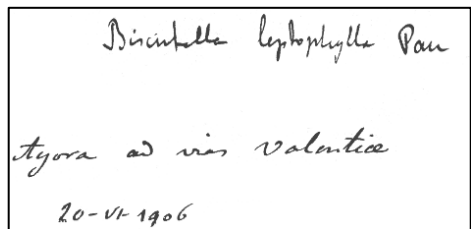 Biscutella leptophylla Pau
Ayora ad vias Valentiae
20-VI-1906